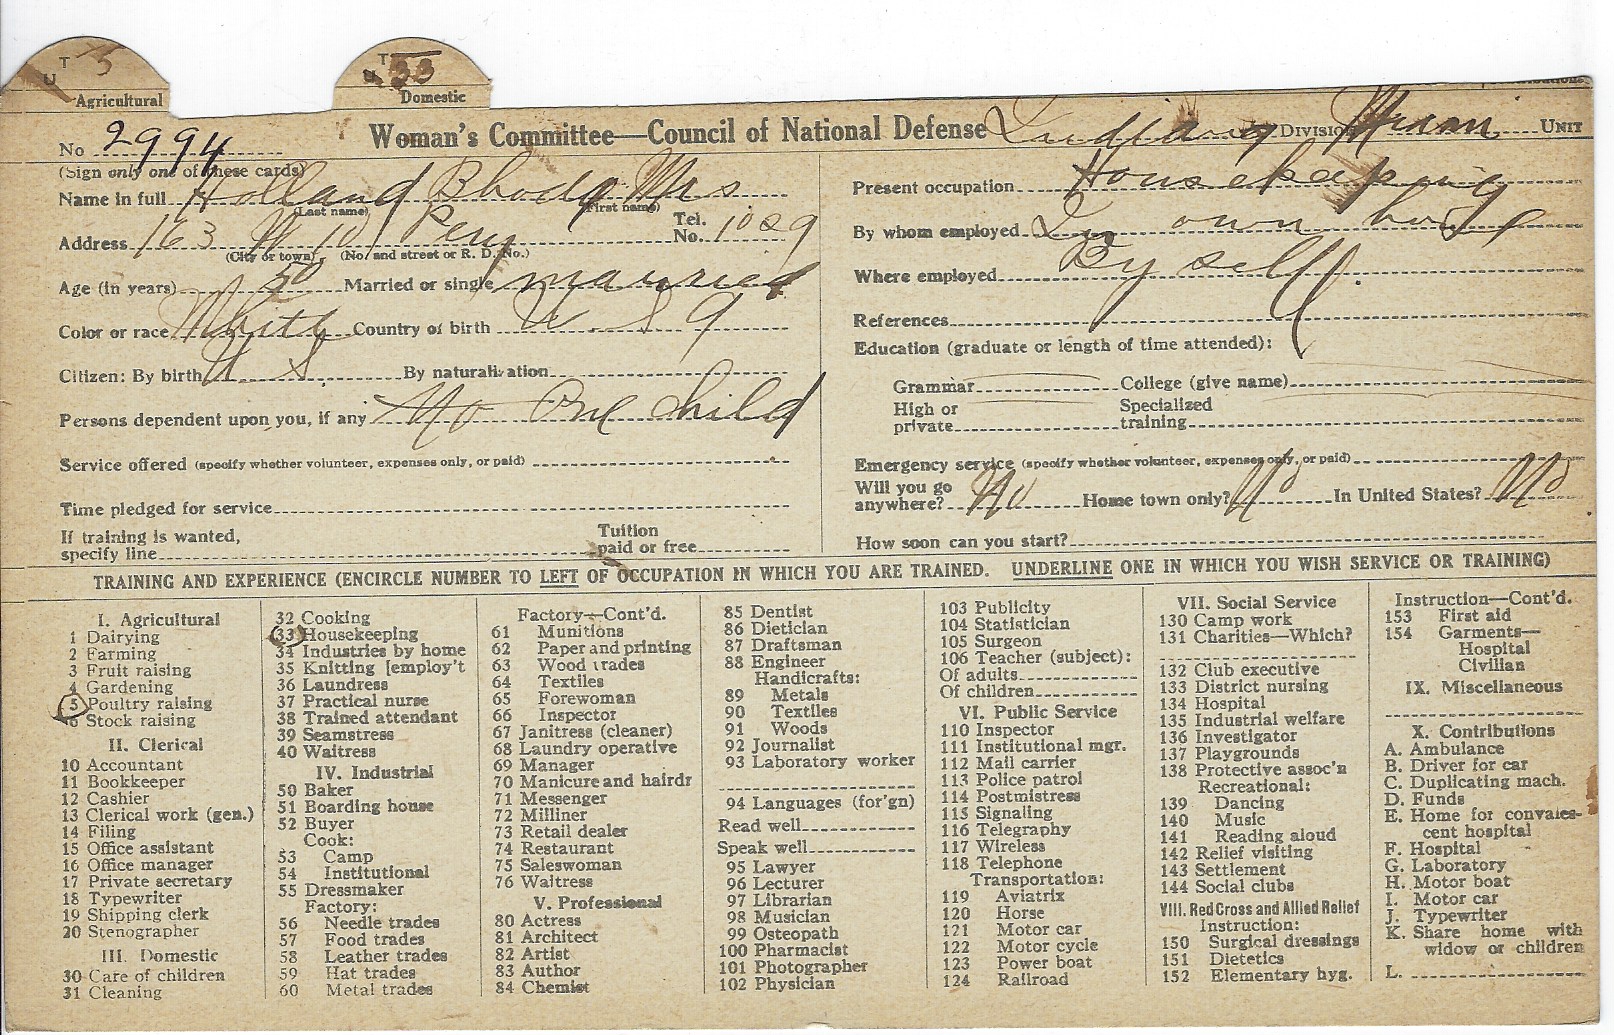 T 5
U
Agricultural
T 33
U
Domestic
No 2994
Woman's Committee—Council of National Defense Indiana DIVISION Miami UNIT
(Sign only one of these cards)
Name in full Holland Rhoda Mrs
(Last name) (First name)
Address 163 W 10 Peru Tel. No. 1029
(City or town) (No. and street or R. D. No.)
Age (in years) 50 Married or single married
Color or race White Country of birth U S a
Citizen: By birth U S. By naturalization
Persons dependent upon you, if any No One child
Service offered (specify whether volunteer, expenses only, or paid)
Time pledged for service
If training is wanted, specify line Tuition paid or free
Present occupation Housekeeping
By whom employed In own home
Where employed By self.
References
Education (graduate or length of time attended):
Grammar College (give name)
High or private Specialized training
Emergency service (specify whether volunteer, expenses only, or paid)
Will you go anywhere? No Home town only? No In United States? No
How soon can you start?
TRAINING AND EXPERIENCE (ENCIRCLE NUMBER TO LEFT OF OCCUPATION IN WHICH YOU ARE TRAINED. UNDERLINE ONE IN WHICH YOU WISH SERVICE OR TRAINING)
I. Agricultural
1 Dairying
2 Farming
3 Fruit raising
4 Gardening
5 Poultry raising
6 Stock raising
II. Clerical
10 Accountant
11 Bookkeeper
12 Cashier
13 Clerical work (gen.)
14 Filing
15 Office assistant
16 Office manager
17 Private secretary
18 Typewriter
19 Shipping clerk
20 Stenographer
III. Domestic
30 Care of children
31 Cleaning
32 Cooking
33 Housekeeping
34 Industries by home
35 Knitting [employ't
36 Laundress
37 Practical nurse
38 Trained attendant
39 Seamstress
40 Waitress
IV. Industrial
50 Baker
51 Boarding house
52 Buyer
Cook:
53 Camp
54 Institutional
55 Dressmaker
Factory:
56 Needle trades
57 Food trades
58 Leather trades
59 Hat trades
60 Metal trades
Factory—Cont'd.
61 Munitions
62 Paper and printing
63 Wood trades
64 Textiles
65 Forewoman
66 Inspector
67 Janitress (cleaner)
68 Laundry operative
69 Manager
70 Manicure and hairdr
71 Messenger
72 Milliner
73 Retail dealer
74 Restaurant
75 Saleswoman
76 Waitress
V. Professional
80 Actress
81 Architect
82 Artist
83 Author
84 Chemist
85 Dentist
86 Dietician
87 Draftsman
88 Engineer
Handicrafts:
89 Metals
90 Textiles
91 Woods
92 Journalist
93 Laboratory worker
94 Languages (for'gn)
Read well
Speak well
95 Lawyer
96 Lecturer
97 Librarian
98 Musician
99 Osteopath
100 Pharmacist
101 Photographer
102 Physician
103 Publicity
104 Statistician
105 Surgeon
106 Teacher (subject):
Of adults
Of children
VI. Public Service
110 Inspector
111 Institutional mgr.
112 Mail carrier
113 Police patrol
114 Postmistress
115 Signaling
116 Telegraphy
117 Wireless
118 Telephone
Transportation:
119 Aviatrix
120 Horse
121 Motor car
122 Motor cycle
123 Power boat
124 Railroad
VII. Social Service
130 Camp work
131 Charities—Which?
132 Club executive
133 District nursing
134 Hospital
135 Industrial welfare
136 Investigator
137 Playgrounds
138 Protective assoc'n
Recreational:
139 Dancing
140 Music
141 Reading aloud
142 Relief visiting
143 Settlement
144 Social clubs
VIII. Red Cross and Allied Relief
Instruction:
150 Surgical dressings
151 Dietetics
152 Elementary hyg.
Instruction—Cont'd.
153 First aid
154 Garments—
Hospital
Civilian
IX. Miscellaneous
X. Contributions
A. Ambulance
B. Driver for car
C. Duplicating mach.
D. Funds
E. Home for convales-
cent hospital
F. Hospital
G. Laboratory
H. Motor boat
I. Motor car
J. Typewriter
K. Share home with
widow or children
L.